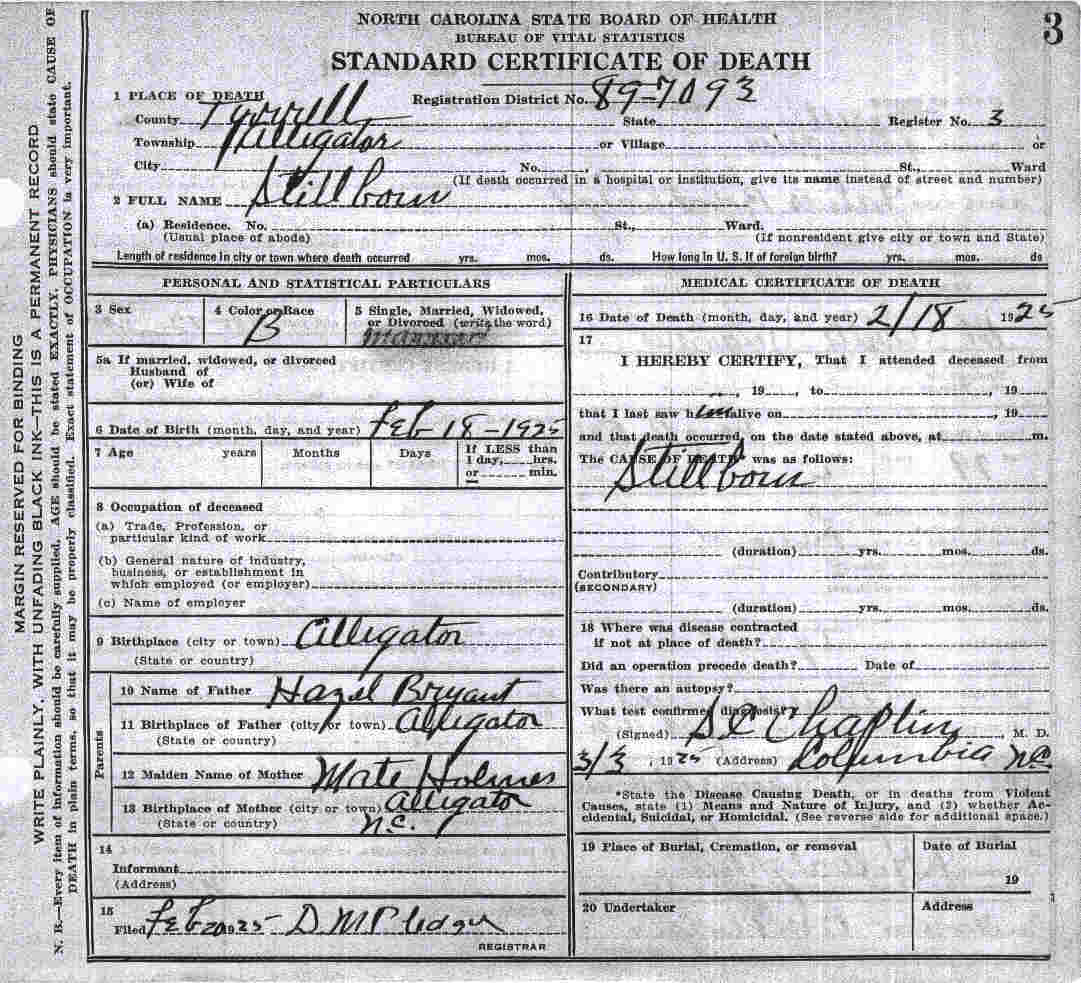 NORTH CAROLINA STATE BOARD OF HEALTH
BUREAU OF VITAL STATISTICS
STANDARD CERTIFICATE OF DEATH
3
1 PLACE OF DEATH Registration District No. 89-7093
County Tyrrell State Register No. 3
Township Alligator or Village or
City No. , St., Ward
(If death occurred in a hospital or institution, give its name instead of street and number)
2 FULL NAME Stillborn
(a) Residence. No. St., Ward.
(Usual place of abode) (If nonresident give city or town and State)
Length of residence in city or town where death occurred yrs. mos. ds. How long in U. S. if of foreign birth? yrs. mos. ds
PERSONAL AND STATISTICAL PARTICULARS
3 Sex
4 Color or Race B
5 Single, Married, Widowed,
or Divorced (write the word)
5a If married, widowed, or divorced
Husband of
(or) Wife of
6 Date of Birth (month, day, and year) Feb 18-1925
7 Age years Months Days If LESS than
1 day, hrs.
or min.
8 Occupation of deceased
(a) Trade, Profession, or
particular kind of work
(b) General nature of industry,
business, or establishment in
which employed (or employer)
(c) Name of employer
9 Birthplace (city or town) Alligator
(State or country)
Parents
10 Name of Father Hazel Bryant
11 Birthplace of Father (city or town) Alligator
(State or country)
12 Maiden Name of Mother Holmes
13 Birthplace of Mother (city or town) Alligator
(State or country) N.C.
14
Informant
(Address)
15
Filed Feb 20 1925 D M Pledger
REGISTRAR
MEDICAL CERTIFICATE OF DEATH
16 Date of Death (month, day, and year) 2/18 1925
17
I HEREBY CERTIFY, That I attended deceased from
, 19 , to , 19
that I last saw him alive on , 19
and that death occurred, on the date stated above, at m.
The CAUSE OF DEATH* was as follows:
Stillborn
(duration) yrs. mos. ds.
Contributory
(SECONDARY)
(duration) yrs. mos. ds.
18 Where was disease contracted
if not at place of death?
Did an operation precede death? Date of
Was there an autopsy?
What test confirmed diagnosis?
(Signed) S C Chaplin, M. D.
3/3, 1925 (Address) Columbia NC.
*State the Disease Causing Death, or in deaths from Violent
Causes, state (1) Means and Nature of Injury, and (2) whether Ac-
cidental, Suicidal, or Homicidal. (See reverse side for additional space.)
19 Place of Burial, Cremation, or removal
Date of Burial
19
20 Undertaker
Address
MARGIN RESERVED FOR BINDING
WRITE PLAINLY, WITH UNFADING BLACK INK—THIS IS A PERMANENT RECORD
N. B.—Every item of information should be carefully supplied. AGE should be stated EXACTLY. PHYSICIANS should state CAUSE OF
DEATH in plain terms, so that it may be properly classified. Exact statement of OCCUPATION is very important.